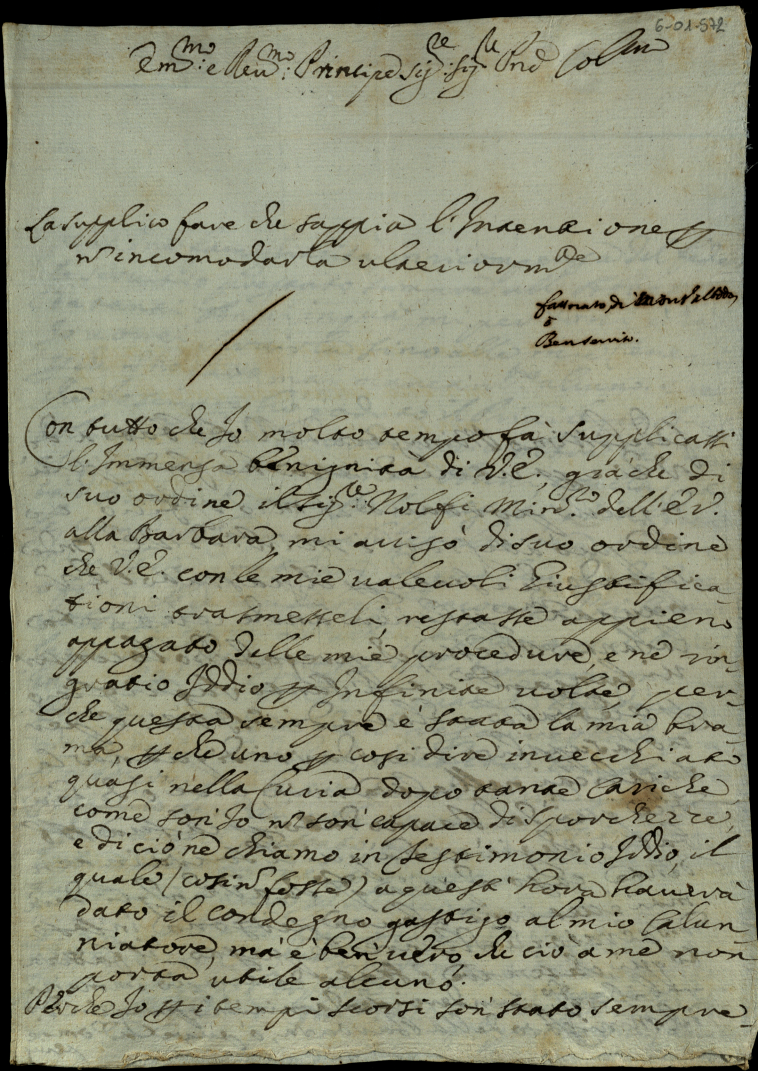 6-01-572
Em.mo e Reu.mo Principe Sig.re Sig.r Pne Col.mo
La supplico fare che sappia l'Intentione p
nō incomodarla ulteriorm.te
ò
Benseruito.
Con tutto che Io molto tempo fà supplicassi
l'Immensa benignità di V.E., già che di
suo ordine il Sig.re Nolfi Min.ro dell'E.V.
alla Barbara, mi auisò di suo ordine
che V.E. con le mie ualeuoli Giustifica-
tioni trasmesseli, restasse appieno
appagato delle mie procedure, e ne rin-
gratio Iddio p Infinite uolte, per-
che questa sempre è stata la mia bra-
ma, p che uno p così dire inuecchiato
quasi nella Curia dopo tante Cariche,
come son' Io nō son' capace di sporcherie,
e di ciò ne chiamo in testimonio Iddio, il
quale (così nō fosse) a quest' hora hauerà
dato il condegno gastigo al mio Calun-
niatore, mà è ben' uero, che ciò a me non
porta utile alcuno.
Perche Io p i tempi scorsi son' stato sempre